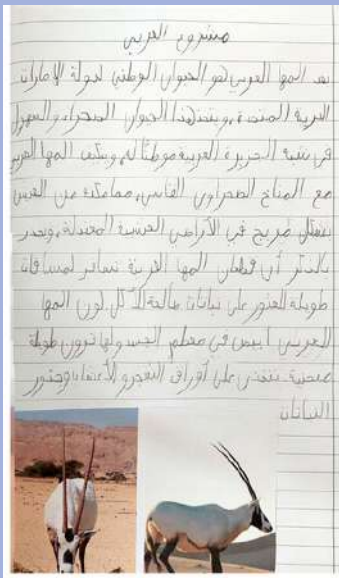 مشروع العربي
يعد المها العربي هو الحيوان الوطني لدولة الإمارات
العربية المتحدة، ويتخذ هذا الحيوان الصحراء والسهول
في شبه الجزيرة العربية موطنًا له، ويتكيف المها العربي
مع المناخ الصحراوي القاسي،
في الأراضي العشبية المعتدلة، ويجدر
بالذكر أن قطعان المها العربية تسافر لمسافات
طويلة للعثور على نباتات صالحة للأكل لون المها
العربي ابيض في معظم الجسم ولها قرون طويلة
منحنية تتغذى على أوراق الشجر والأعشاب وجذور
النباتات